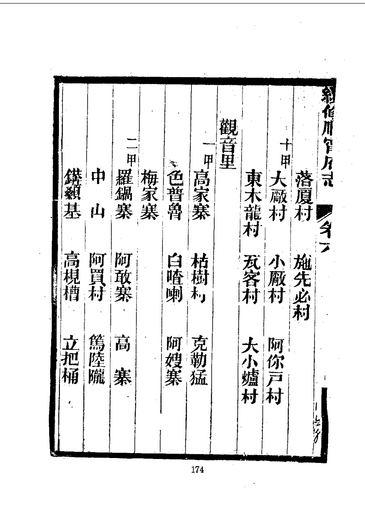 續修順寧府志 卷六
落厦村 施先必村
十甲 大廠村 小廠村 阿你戸村
東木龍村 瓦客村 大小爐村
觀音里
一甲 高家寨 枯樹村 克勒猛
色普魯 白喳喇 阿嫂寨
梅家寨
二甲 羅鍋寨 阿敢寨 高寨
中山 阿買村 篤陸隴
高梘槽 立把桶
174